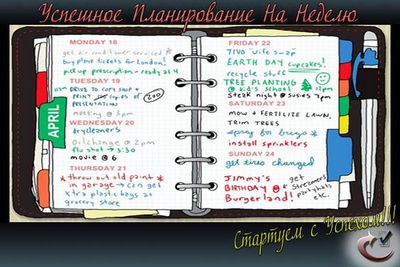 Успешное Планирование На Неделю
MONDAY 18
get air conditioner serviced
buy plane tickets for London!
pick up prescription - ready at 4
TUESDAY 19
DRIVE TO COPY SHOP +
PRINT OF
PRESENTATION
200
meeting @ 1pm
WEDNESDAY 20
drycleaners
Oil change @ 2pm
flu shot → 3:30
movie @ 6
THURSDAY 21
* throw out old paint *
in garage → can get
xtra plastic bags at
grocery store
APRIL
FRIDAY 22
TiVo wife swap
EARTH DAY cupcakes!
recycle stuff
TREE PLANTING
@ kid's school 12pm
Steak night @ Susies 7pm
SATURDAY 23
MOW + FERTILIZE LAWN,
TRIM TREES
spray for bugs
install sprinklers
SUNDAY 24
get tires changed
JIMMY'S
BIRTHDAY @
Burgerland!
get
streamers
party hats
etc.
Стартуем с Успехом!!!